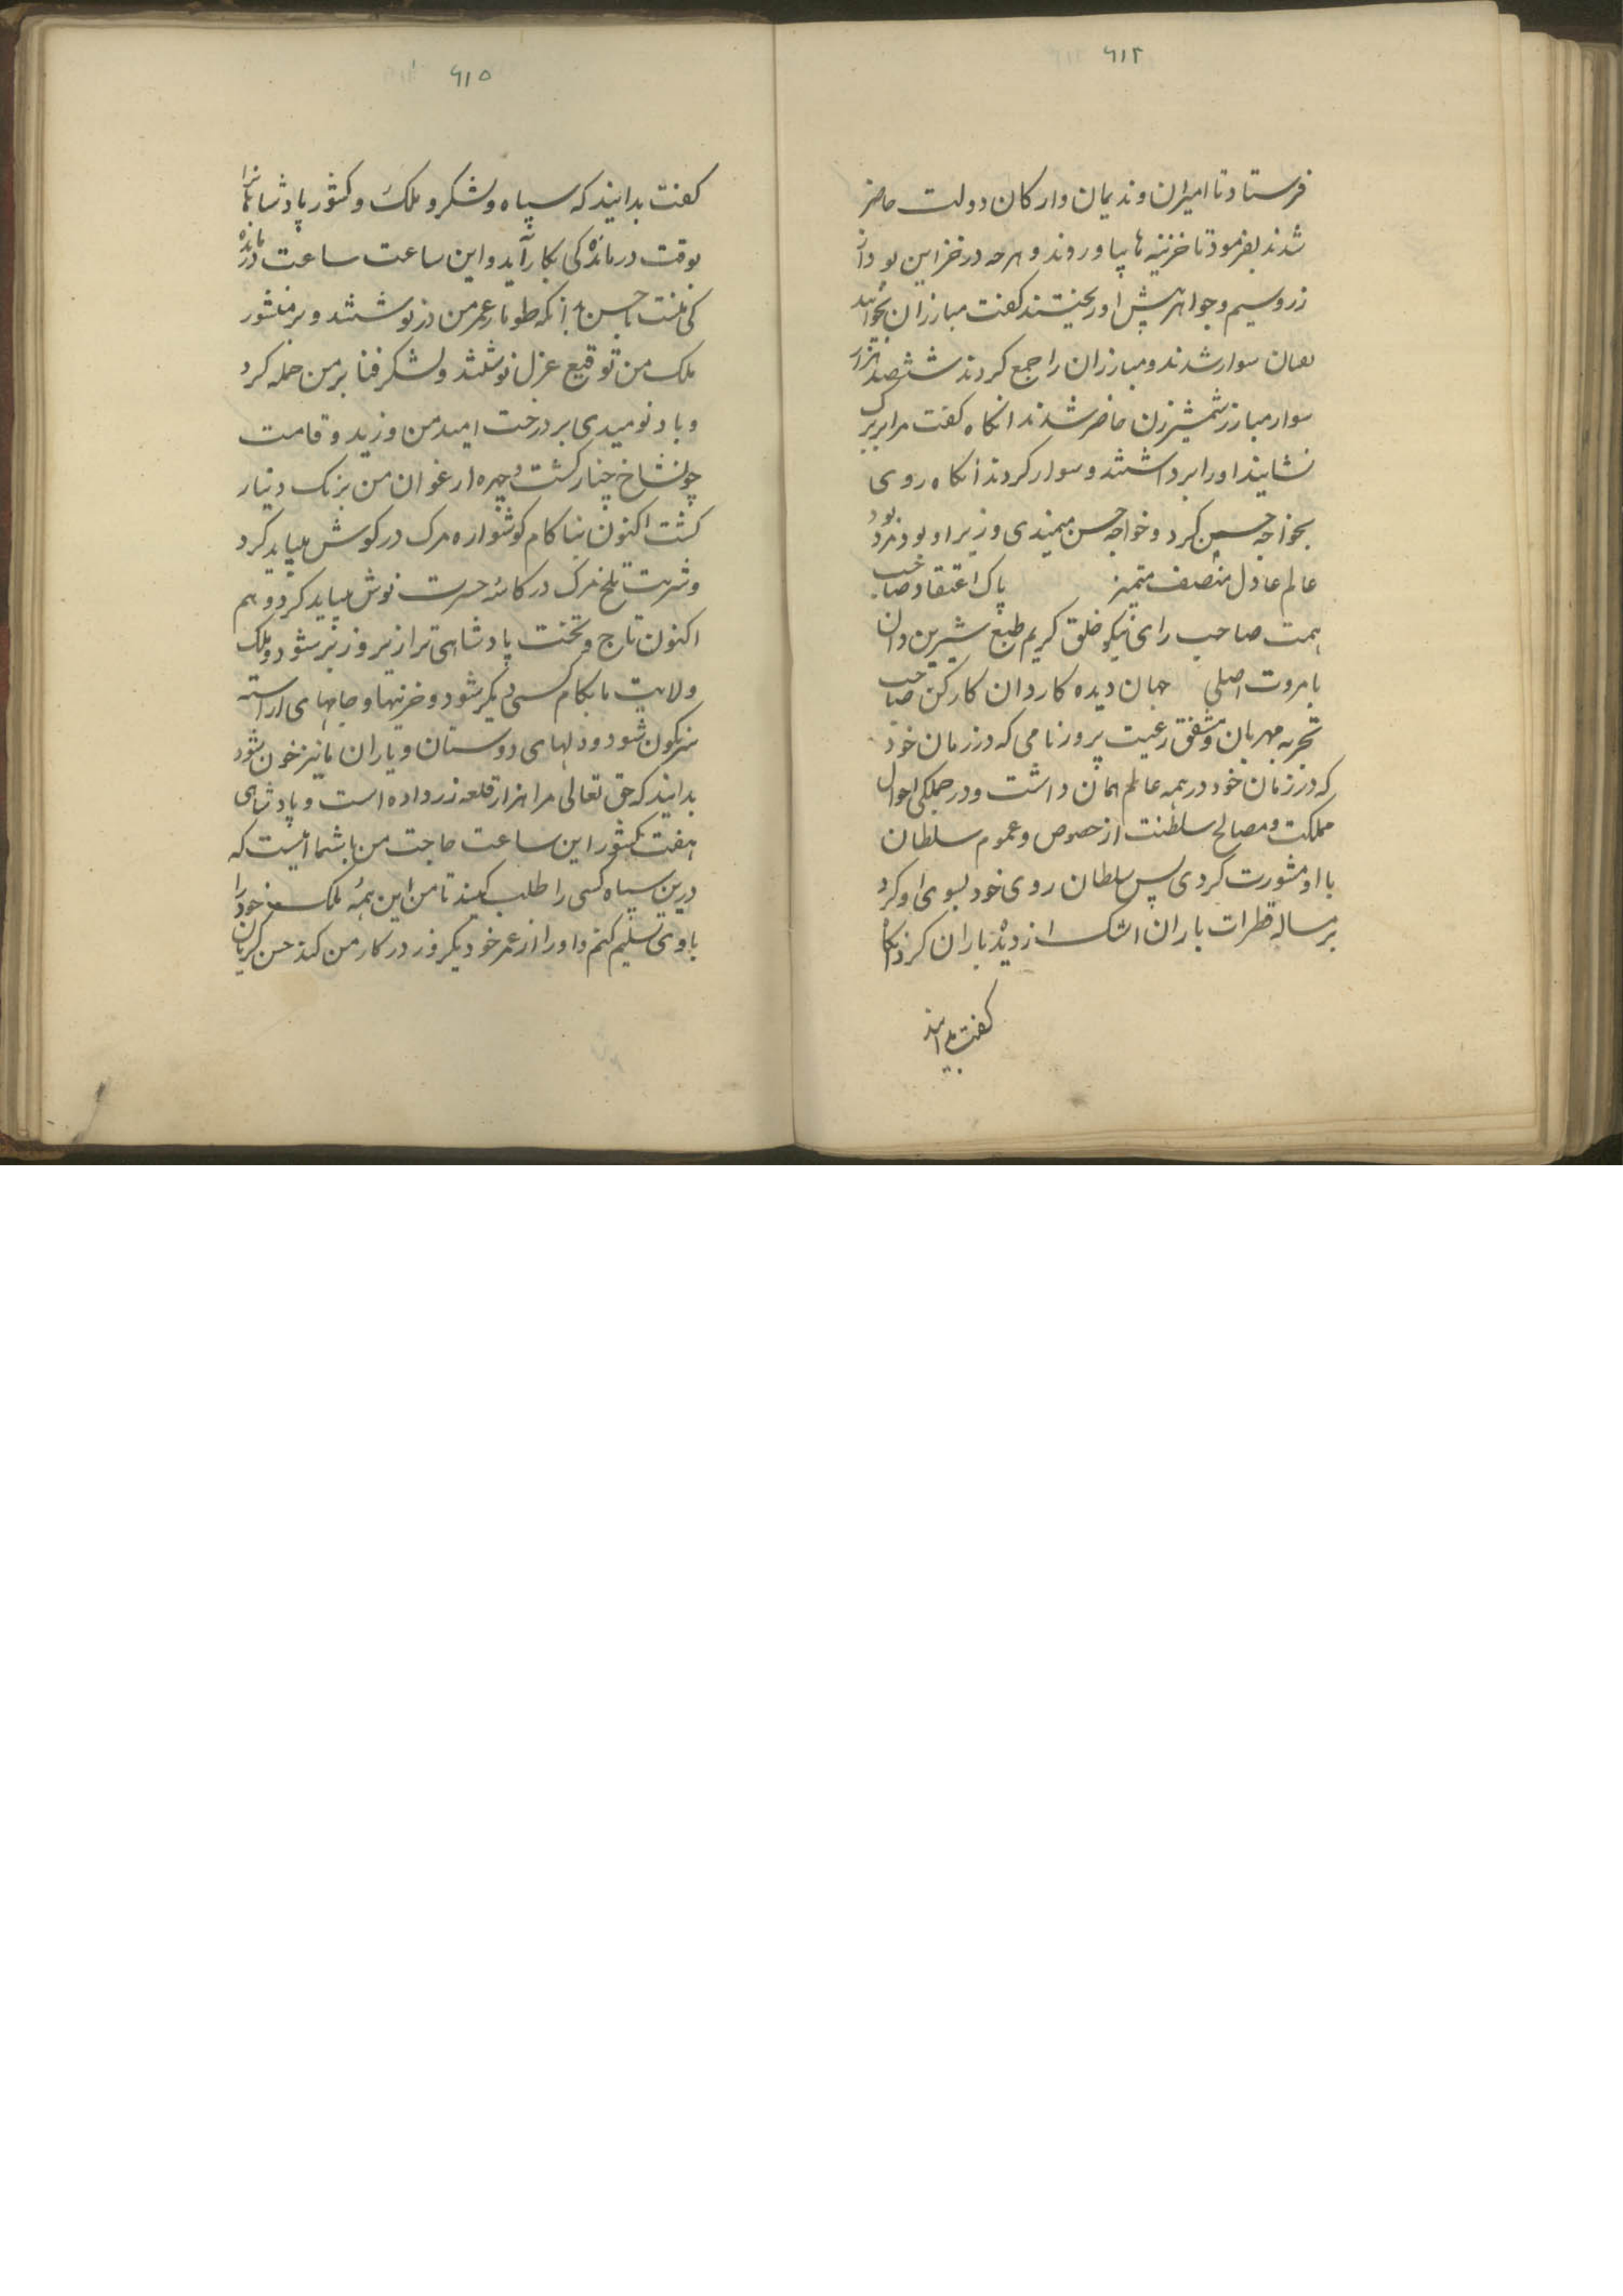 ۶۱۴
فرستاد تا امیران و ندیمان و ارکان دولت حاضر
شدند بفرمود تا خزینه ها بیاوردند و هرچه در خزاین بود از
زر و سیم و جواهر پیش او ریختند کفت مبارزان بخوانید
سوار شدند و مبارزان را جمع کردند ششصد هزار
سوار مبارز شمشیرزن حاضر شدند انکاه کفت مرا بر
نشانید او را برداشتند و سوار کردند انکاه روی
بخواجه حسین کرد و خواجه حسن میمندی وزیر او بود مرد بود
عالم عادل منصف متمیز پاک اعتقاد صاحب
همت صاحب رای نیکو خلق کریم طبع شیرین
با مروت اصلی جهان دیده کاردان کارکن صاحب
تجربه مهربان و مشفق رعیت پرور نامی که در زمان خود
که در زمان خود در همه عالم همان داشت و در جملکی احوال
مملکت و مصالح سلطنت از خصوص و عموم سلطان
با او مشورت کردی پس سلطان روی خود بسوی او کرد
بر مساله قطرات باران اشک از دیده باران کرد انکاه
کفت بدانید
۶۱۵
کفت بدانید که سپاه و لشکر و ملک و کشور پادشاهانرا
بوقت درماندکی بکار آید و این ساعت ساعت درمانده
کی منست یا حسن بدانکه طومار عمر من در نوشتند و بر منشور
ملک من توقیع عزل نوشتند و لشکر فنا بر من حمله کرد
و باد نومیدی بر درخت امید من وزید و قامت
چون شاخ چنار کشت و چهره ارغوان من برنک دینار
کشت اکنون بناکام کوشواره مرک در کوش میباید کرد
و شربت تلخ مرک در کاسه حسرت نوش میباید کرد و هم
اکنون تاج و تخت پادشاهی ترا زیر و زبر شود و ملک
ولایت ما بکام کسی دیکر شود و خزینها و جامهای اراسته
سرنکون شود و دلهای دوستان و یاران ما نیز خون شود
بدانید که حق تعالی مرا هزار قلعه زر داده است و پادشاهی
هفت کشور این ساعت حاجت من با شما آنست که
درین سپاه کسی را طلب کنید تا من این همه ملک خود را
با وی تسلیم کنم و او را از عمر خود یکروز در کار من کند حسن کریان